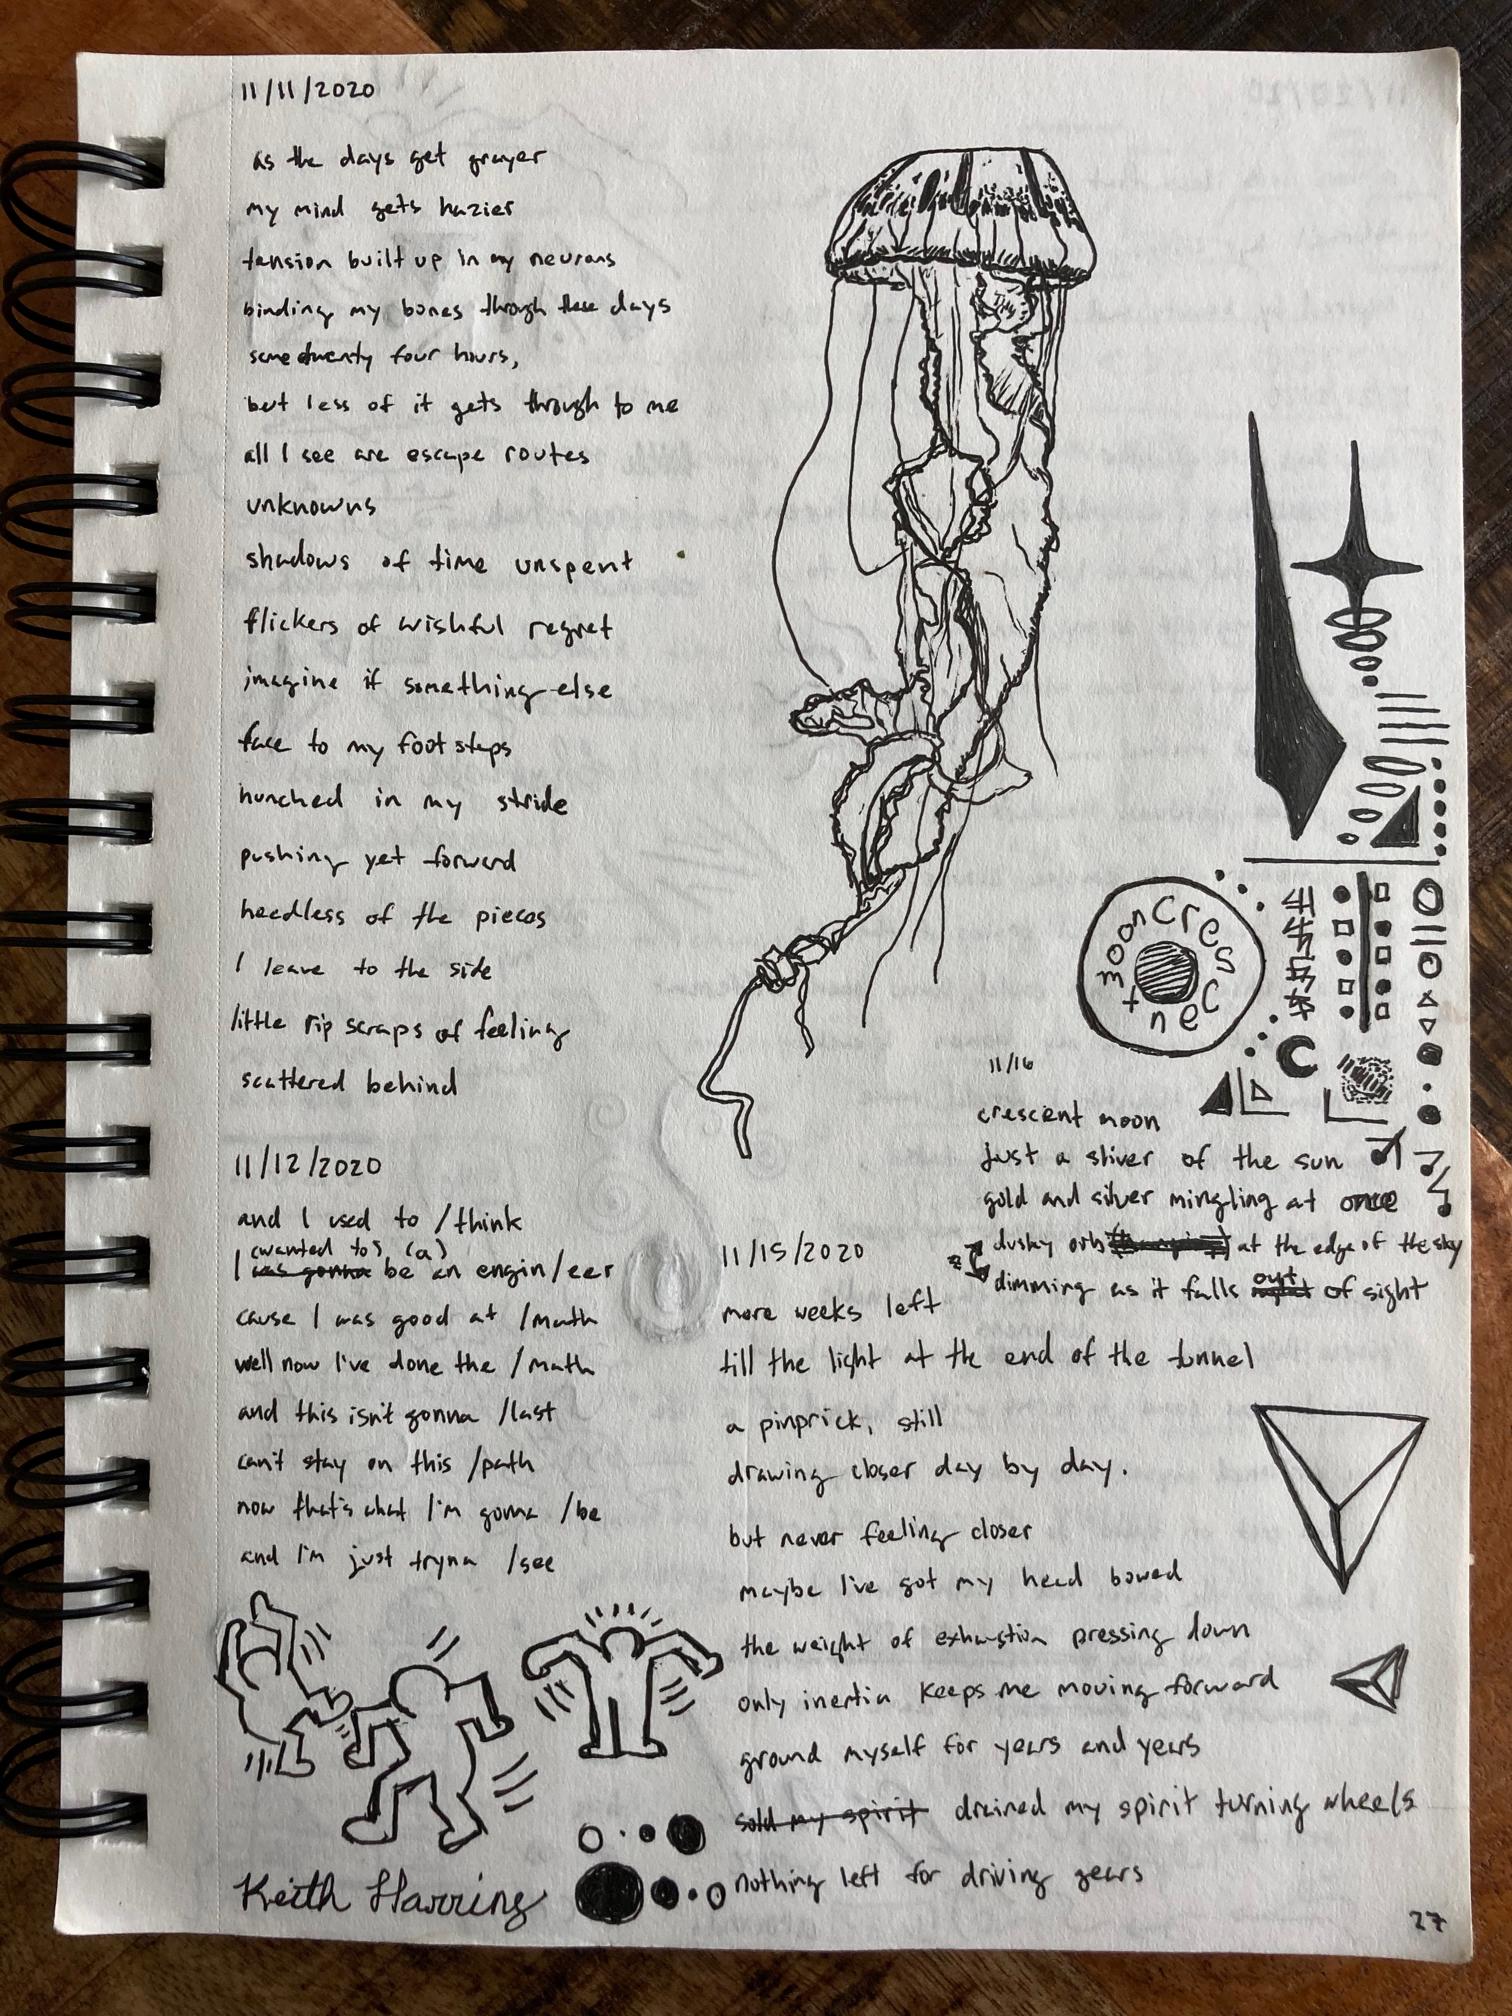 11/11/2020
as the days get grayer
my mind gets hazier
tension built up in my neurons
binding my bones through these days
same twenty four hours,
but less of it gets through to me
all I see are escape routes
unknowns
shadows of time unspent
flickers of wishful regret
imagine if something else
face to my footsteps
hunched in my stride
pushing yet forward
heedless of the pieces
I leave to the side
little rip scraps of feeling
scattered behind
11/12/2020
and I used to /think
(wanted to), (a)
I was gonna be an engin/eer
cause I was good at /math
well now I've done the /math
and this isn't gonna /last
can't stay on this /path
now that's what I'm gonna /be
and I'm just tryna /see
Keith Harring
moon Crescent
11/16
crescent moon
just a sliver of the sun
gold and silver mingling at once
dusky orb at the edge of the sky
out
dimming as it falls of sight
11/15/2020
more weeks left
till the light at the end of the tunnel
a pinprick, still
drawing closer day by day.
but never feeling closer
maybe I've got my head bowed
the weight of exhaustion pressing down
only inertia keeps me moving forward
ground myself for years and years
sold my spirit drained my spirit turning wheels
nothing left for driving gears
27